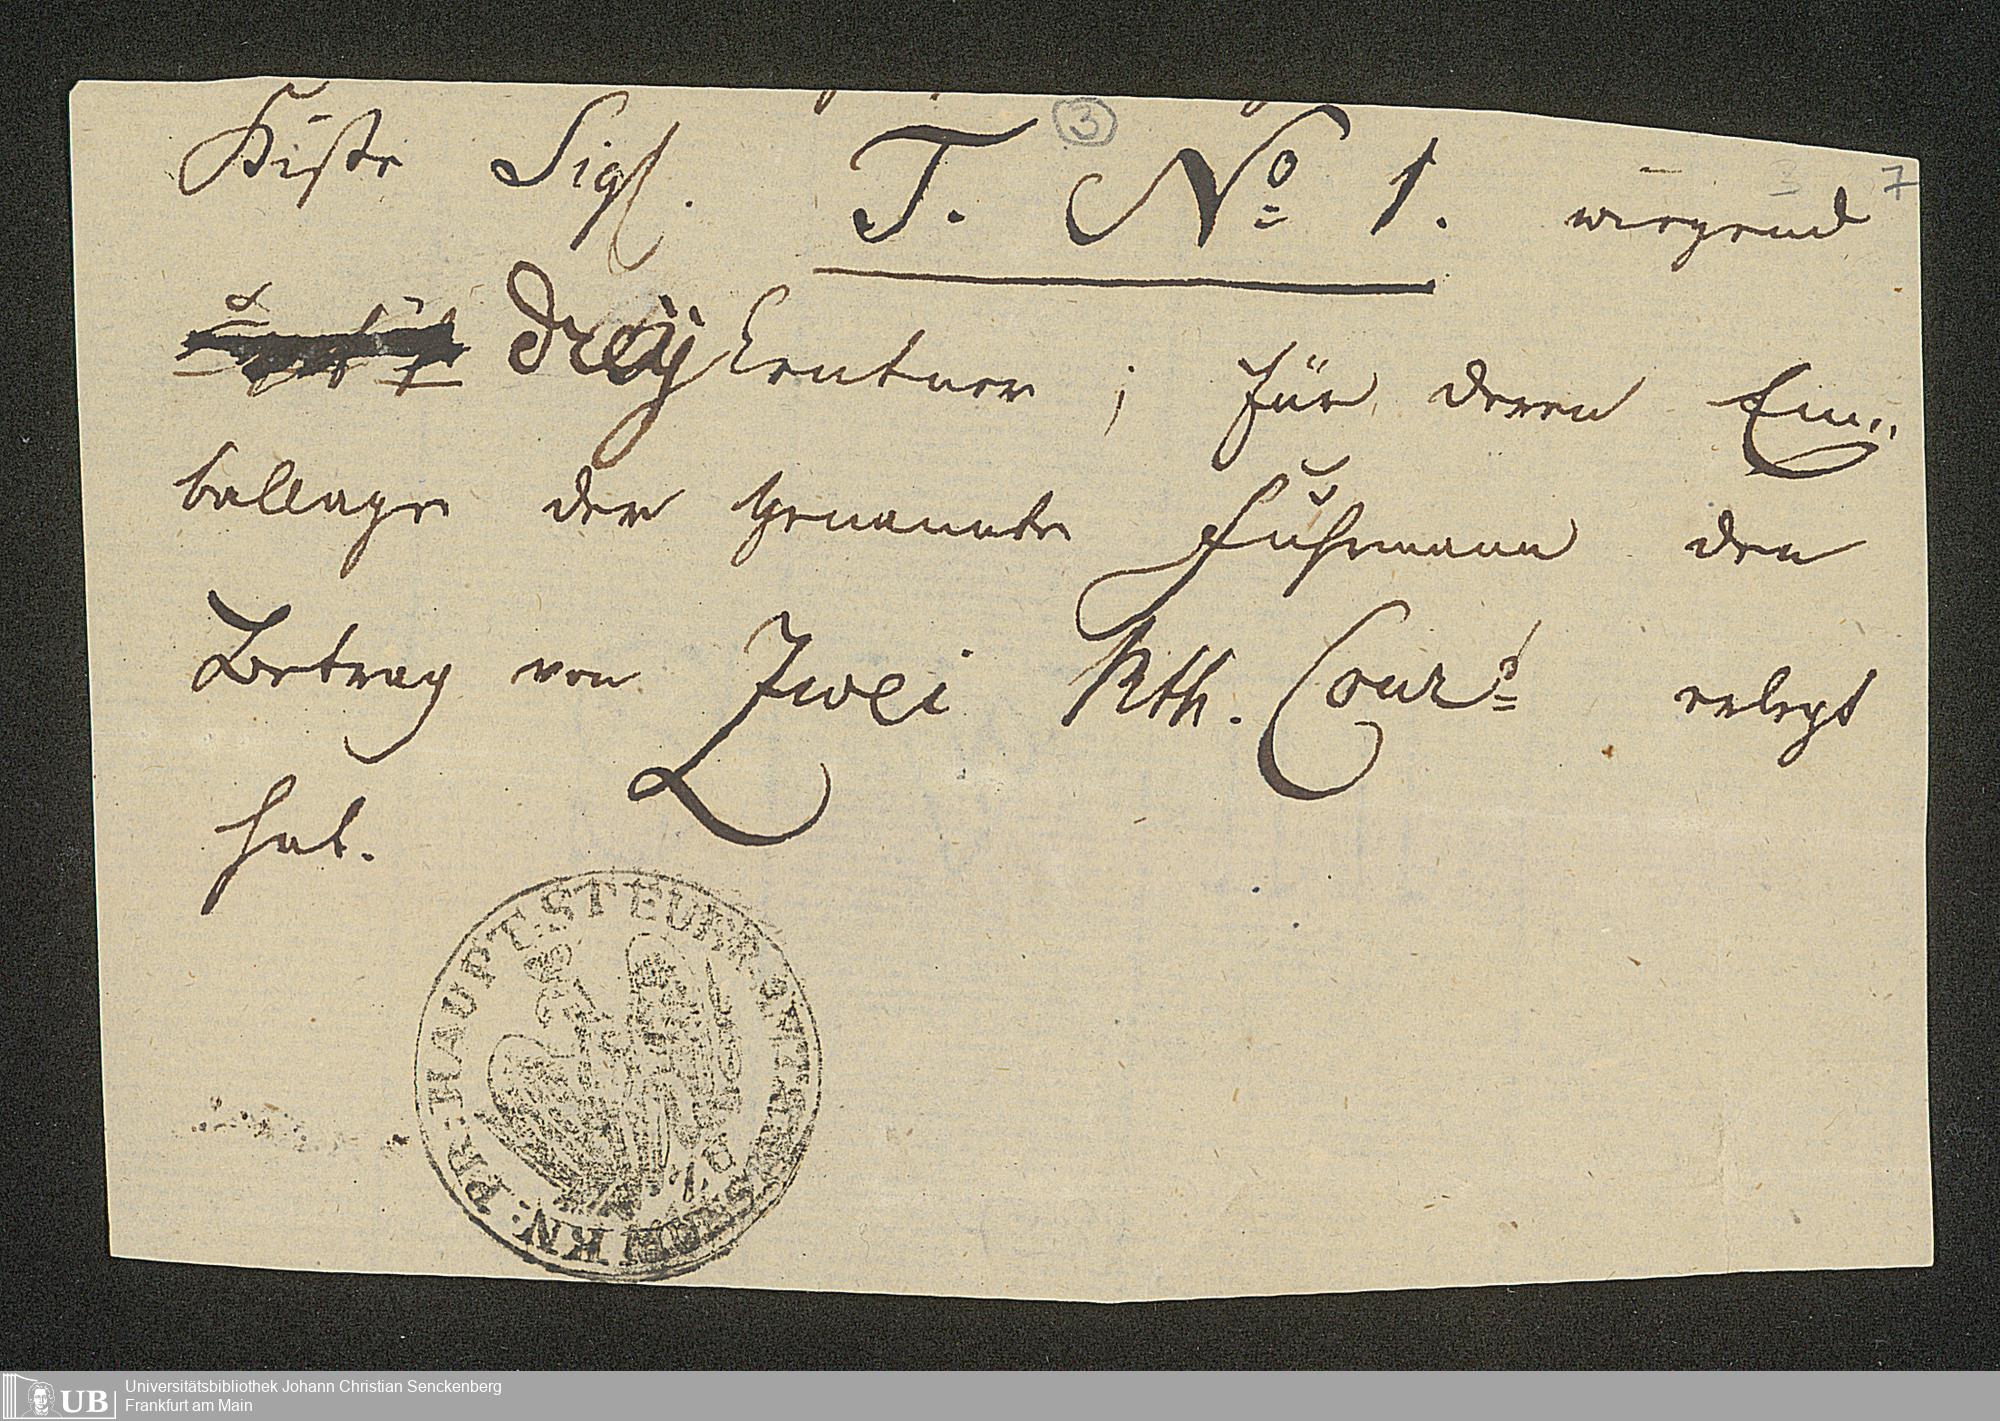 3
Kiste Sigl. T. No 1. wiegend 7
drey Centner; für deren Em-
ballage der Genannte Fuhrmann den
Betrag von Zwei Rth. Cour. erlegt
hat.
PR: HAUPT-STEUER
UB
Universitätsbibliothek Johann Christian Senckenberg
Frankfurt am Main